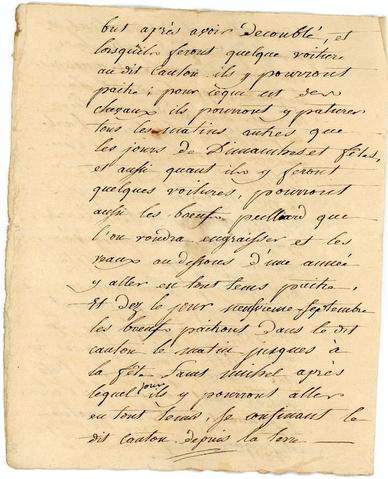 but après avoir Decoublé, et
lorsquils feront quelque voiture
au dit Canton ils y pourront
paitre; pour cequi est des
chevaux ils pourront y paturer
tous les matins autres que
les jours de Dimanches et fêtes,
et aussi quant ils y feront
quelques voitures, pourront
aussi les bœufs que
l'on voudra engraisser et les
veaux au dessous d'une année
y aller en tout tems paitre,
Et dez le jour neufvieme Septembre
les bœufs paitront dans le dit
canton le matin jusques à
la fête Saint Michel après
lequel jour ils y pourront aller
en tout tems, se confinant le
dit Canton depuis la terre